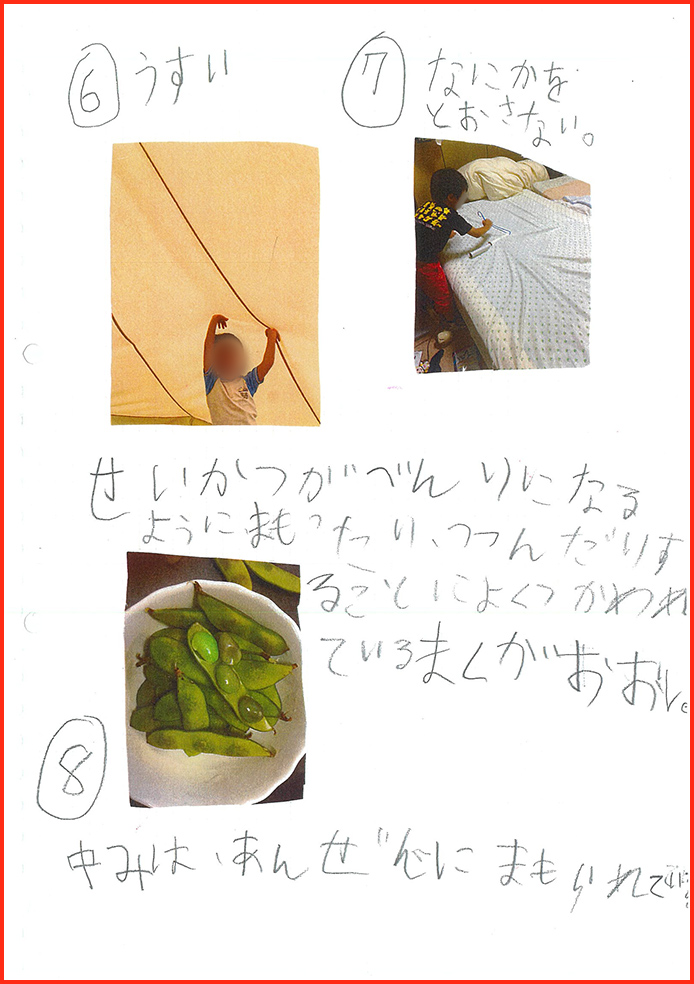 ⑥ うすい
⑦ なにかを
とおさない。
せいかつがべんりになる
ようにまもったり、つつんだりす
ることによくつかわれ
ているまくがおおい。
⑧
中みは、あんぜんにまもられて